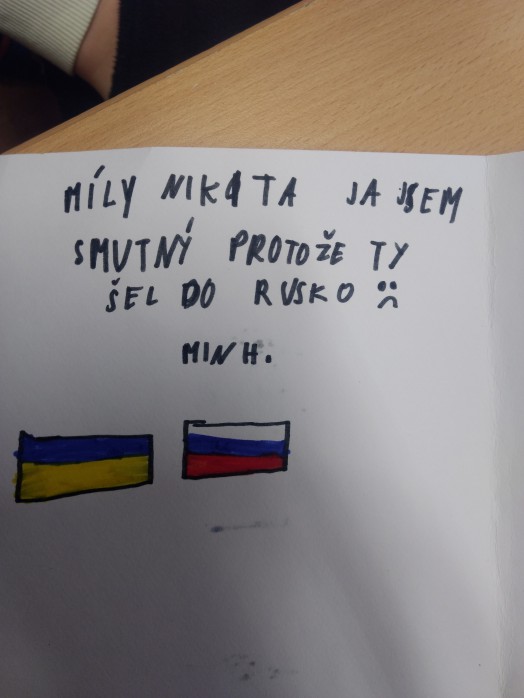 MÍLY NIKITA JA JSEM
SMUTNÝ PROTOŽE TY
ŠEL DO RUSKO ☹
MINH.